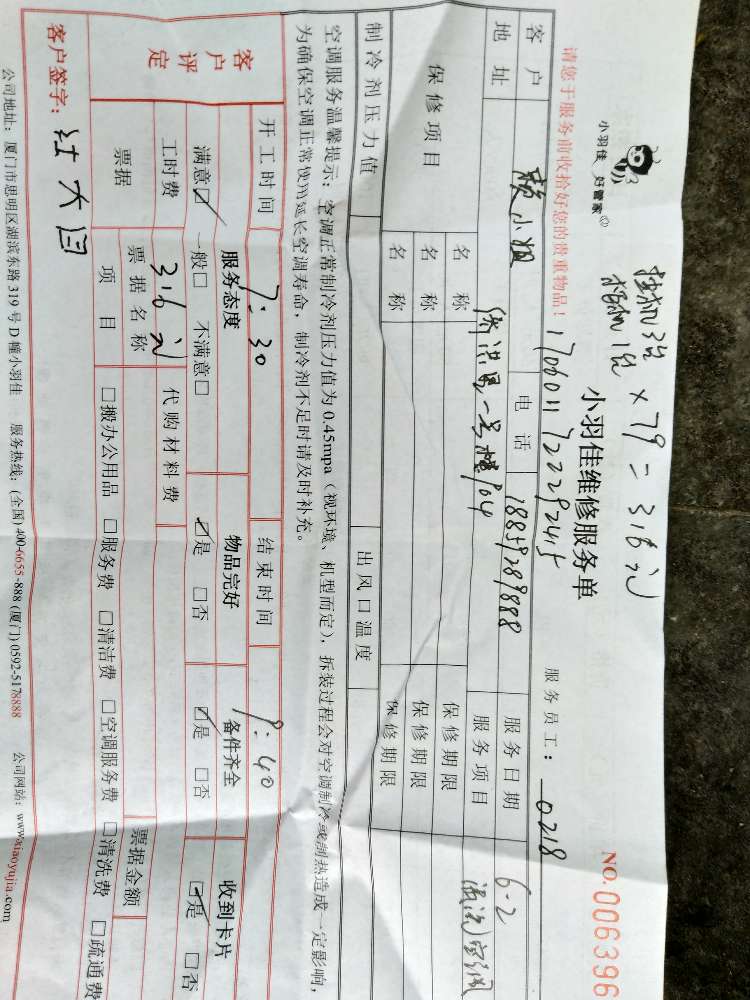 小羽佳 好管家
挂机3台
柜机1台 × 79 = 316元
小羽佳维修服务单
NO.006396
请您于服务前收拾好您的贵重物品！
服务员工： 0218
客户 赖小姐 电话 18859289888 服务日期 6-2
地址 一号楼904 服务项目 清洗空调
保修项目 名称 保修期限
名称 保修期限
名称 保修期限
制冷剂压力值 出风口温度
空调服务温馨提示：空调正常制冷剂压力值为0.45mpa（视环境、机型而定），拆装过程会对空调制冷或制热造成一定影响，
为确保空调正常使用延长空调寿命，制冷剂不足时请及时补充。
开工时间 7:30 结束时间 9:40
客户评定 服务态度 物品完好 备件齐全 收到卡片
满意☑ 一般□ 不满意□ ☑是 □否 ☑是 □否 ☑是 □否
工时费 316元 代购材料费
票据 票据名称 票据金额
项目 □搬办公用品 □服务费 □清洁费 □空调服务费 □清洗费 □疏通费
客户签字：
公司地址：厦门市思明区湖滨东路319号D幢小羽佳 服务热线：(全国)400-6655-888 (厦门)0592-5178888 公司网站：www.xiaoyujia.com